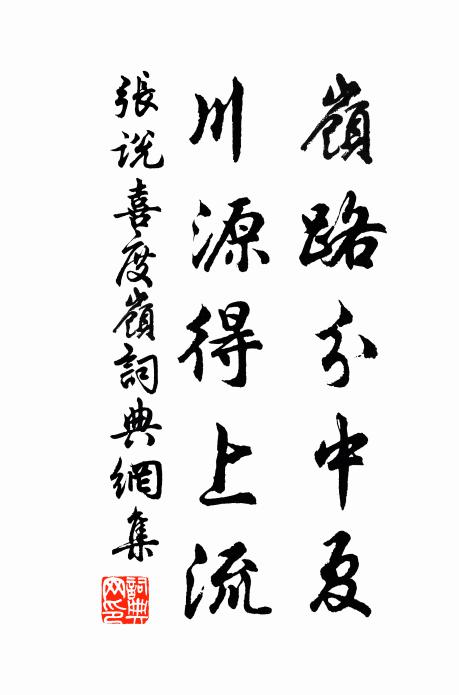 嶺路分中夏
川源得上流
張说喜度嶺詞典網集
詞典
网印